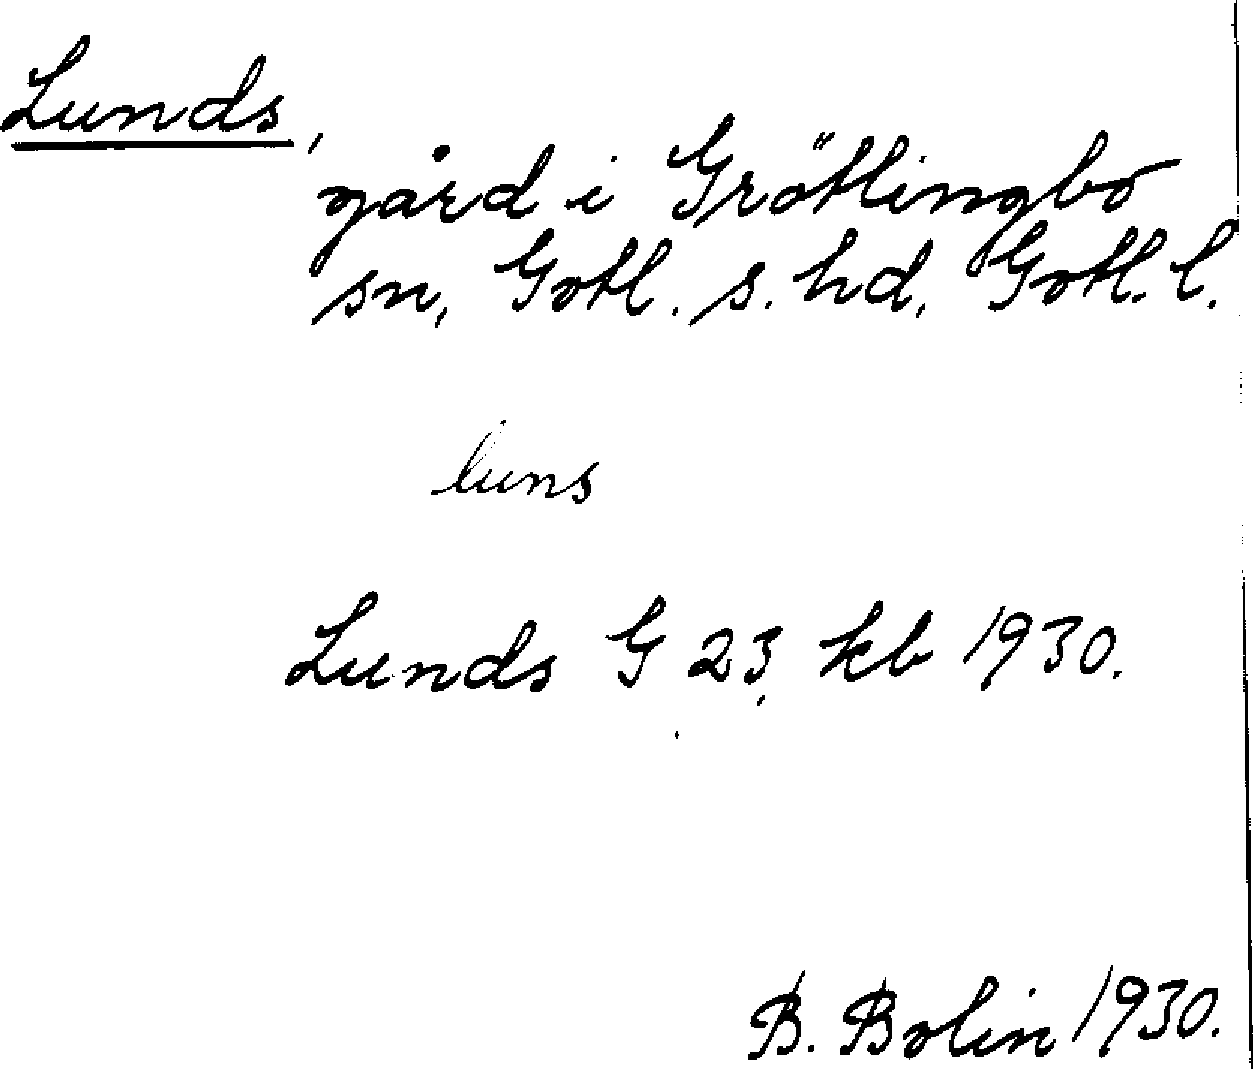 Lunds,
gård i Grötlingbo
sn, Gotl. s. hd, Gotl. l.
luns
Lunds G 23, kb 1930.
B. Bolin 1930.